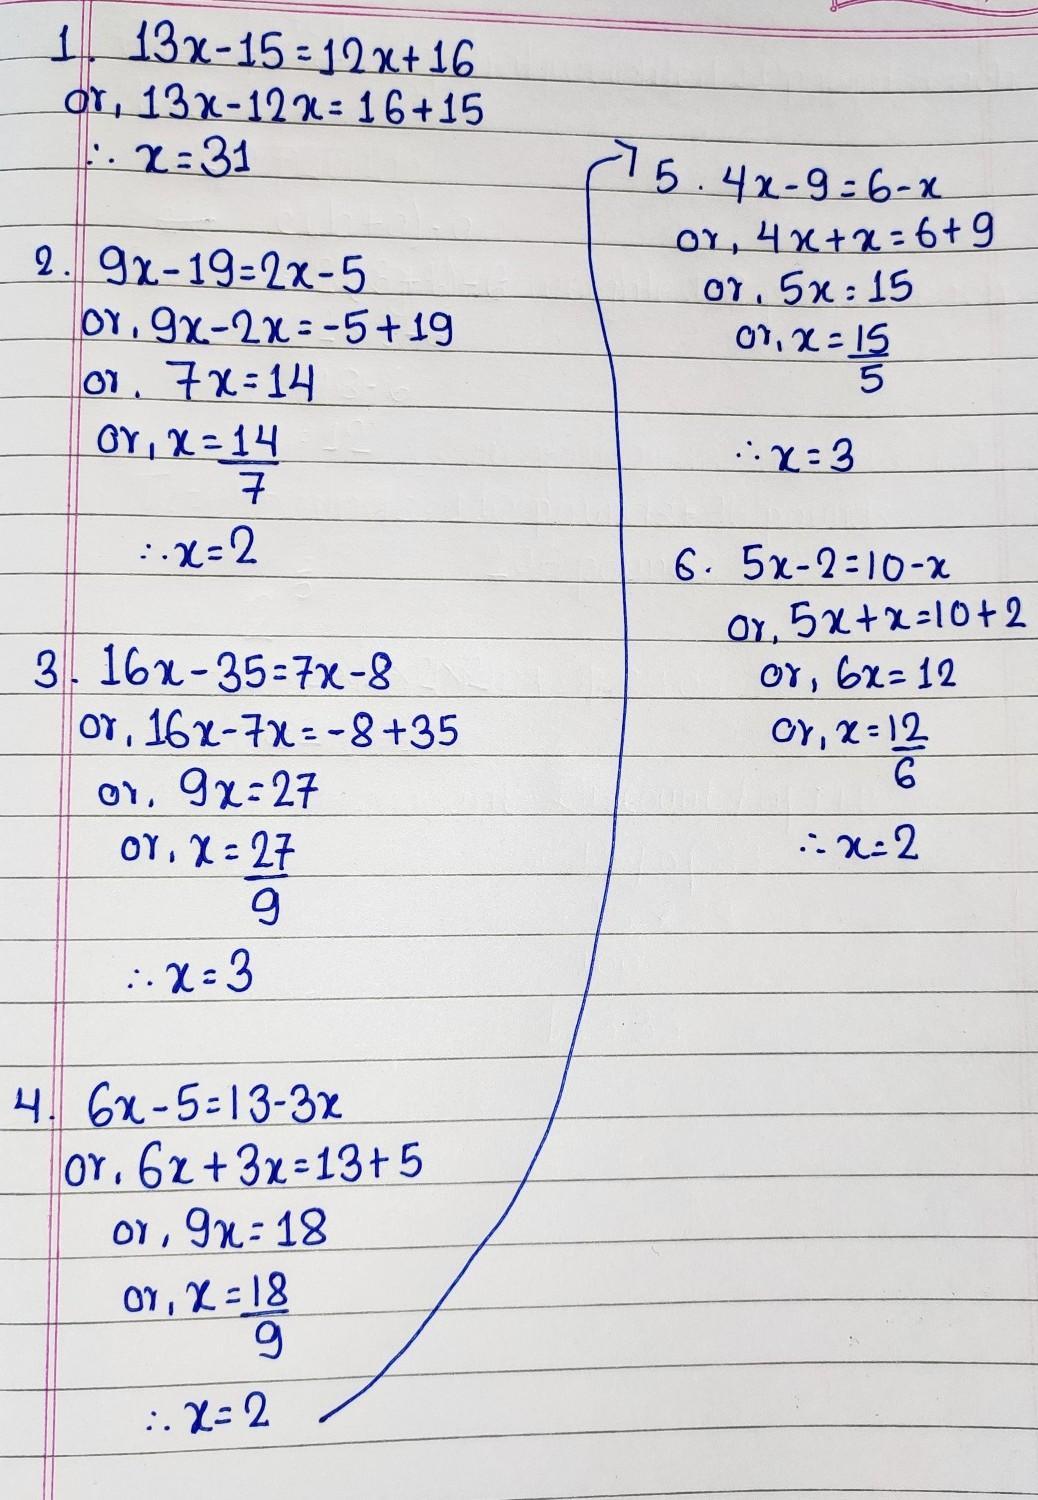 1. 13x-15=12x+16
or, 13x-12x=16+15
∴ x=31
2. 9x-19=2x-5
or, 9x-2x=-5+19
or, 7x=14
or, x=14/7
∴ x=2
3. 16x-35=7x-8
or, 16x-7x=-8+35
or, 9x=27
or, x=27/9
∴ x=3
4. 6x-5=13-3x
or, 6x+3x=13+5
or, 9x=18
or, x=18/9
∴ x=2
5. 4x-9=6-x
or, 4x+x=6+9
or, 5x=15
or, x=15/5
∴ x=3
6. 5x-2=10-x
or, 5x+x=10+2
or, 6x=12
or, x=12/6
∴ x=2